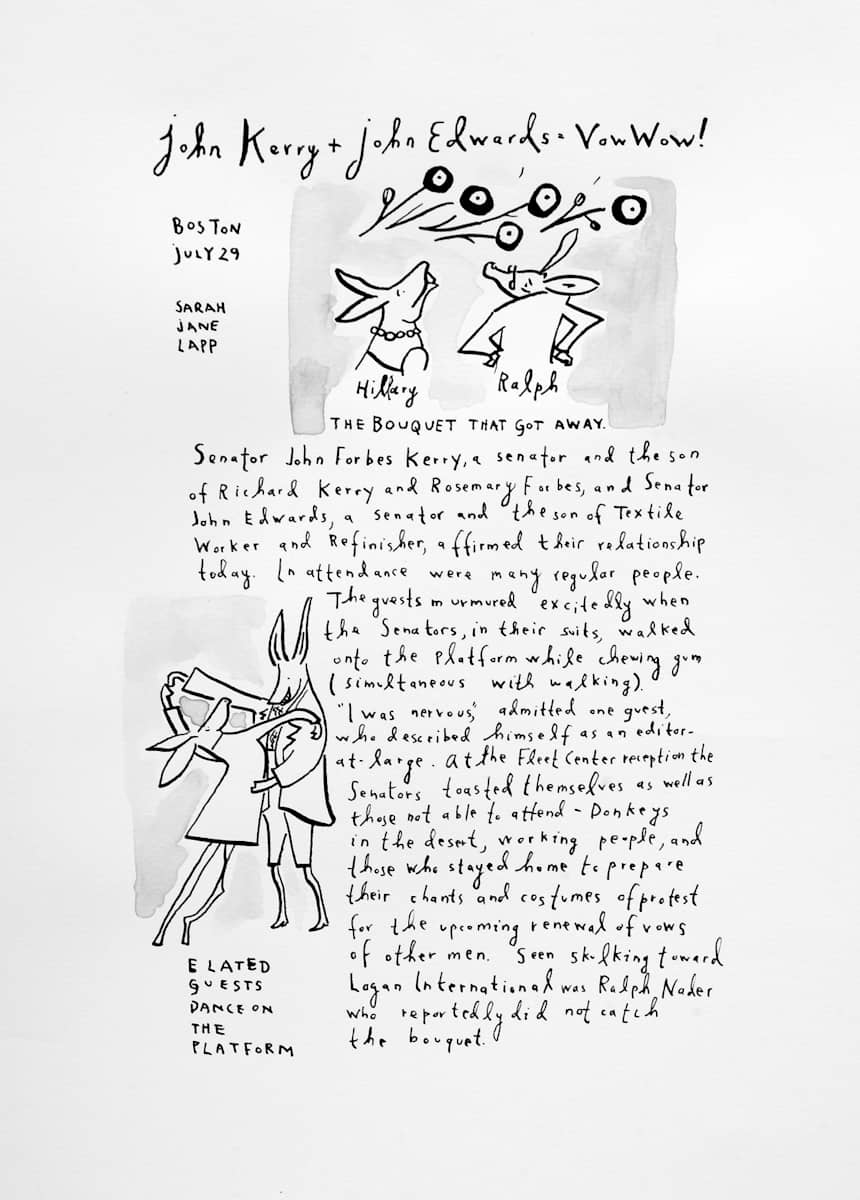 John Kerry + John Edwards = Vow Wow!
BOSTON
JULY 29
SARAH
JANE
LAPP
Hillary
Ralph
THE BOUQUET THAT GOT AWAY.
Senator John Forbes Kerry, a senator and the son
of Richard Kerry and Rosemary Forbes, and Senator
John Edwards, a senator and the son of Textile
Worker and Refinisher, affirmed their relationship
today. In attendance were many regular people.
The guests murmured excitedly when
the Senators, in their suits, walked
onto the platform while chewing gum
(simultaneous with walking).
"I was nervous," admitted one guest,
who described himself as an editor-
at-large. At the Fleet Center reception the
Senators toasted themselves as well as
those not able to attend - Donkeys
in the desert, working people, and
those who stayed home to prepare
their chants and costumes of protest
for the upcoming renewal of vows
of other men. Seen skulking toward
Logan International was Ralph Nader
who reportedly did not catch
the bouquet.
ELATED
GUESTS
DANCE ON
THE
PLATFORM